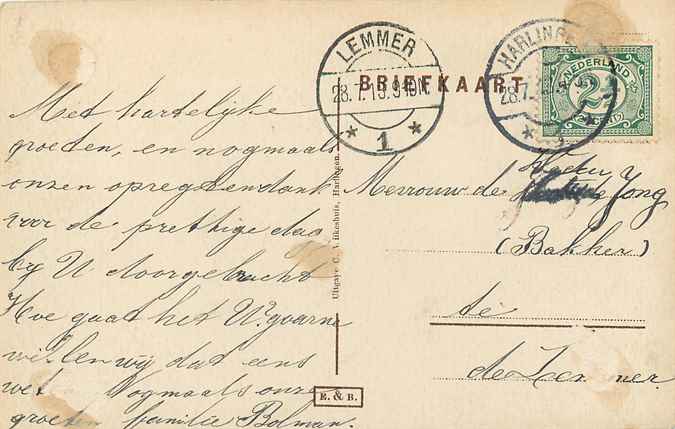 LEMMER
28.7.13.9-10N.
1
BRIEFKAART
HARLINGEN
28.7.
NEDERLAND
2½
Met hartelijke
groeten, en nogmaals
onzen opregten dank
voor de prettige dag
bij U doorgebracht
Hoe gaat het U. gaarne
willen wij dat eens
weten Nogmaals onze
groeten familie Bolman.
Uitgave C. Wilkeshuis, Harlingen.
E. & B.
Mevrouw de Wedu
Jong
(Bakker)
te
de Lemmer